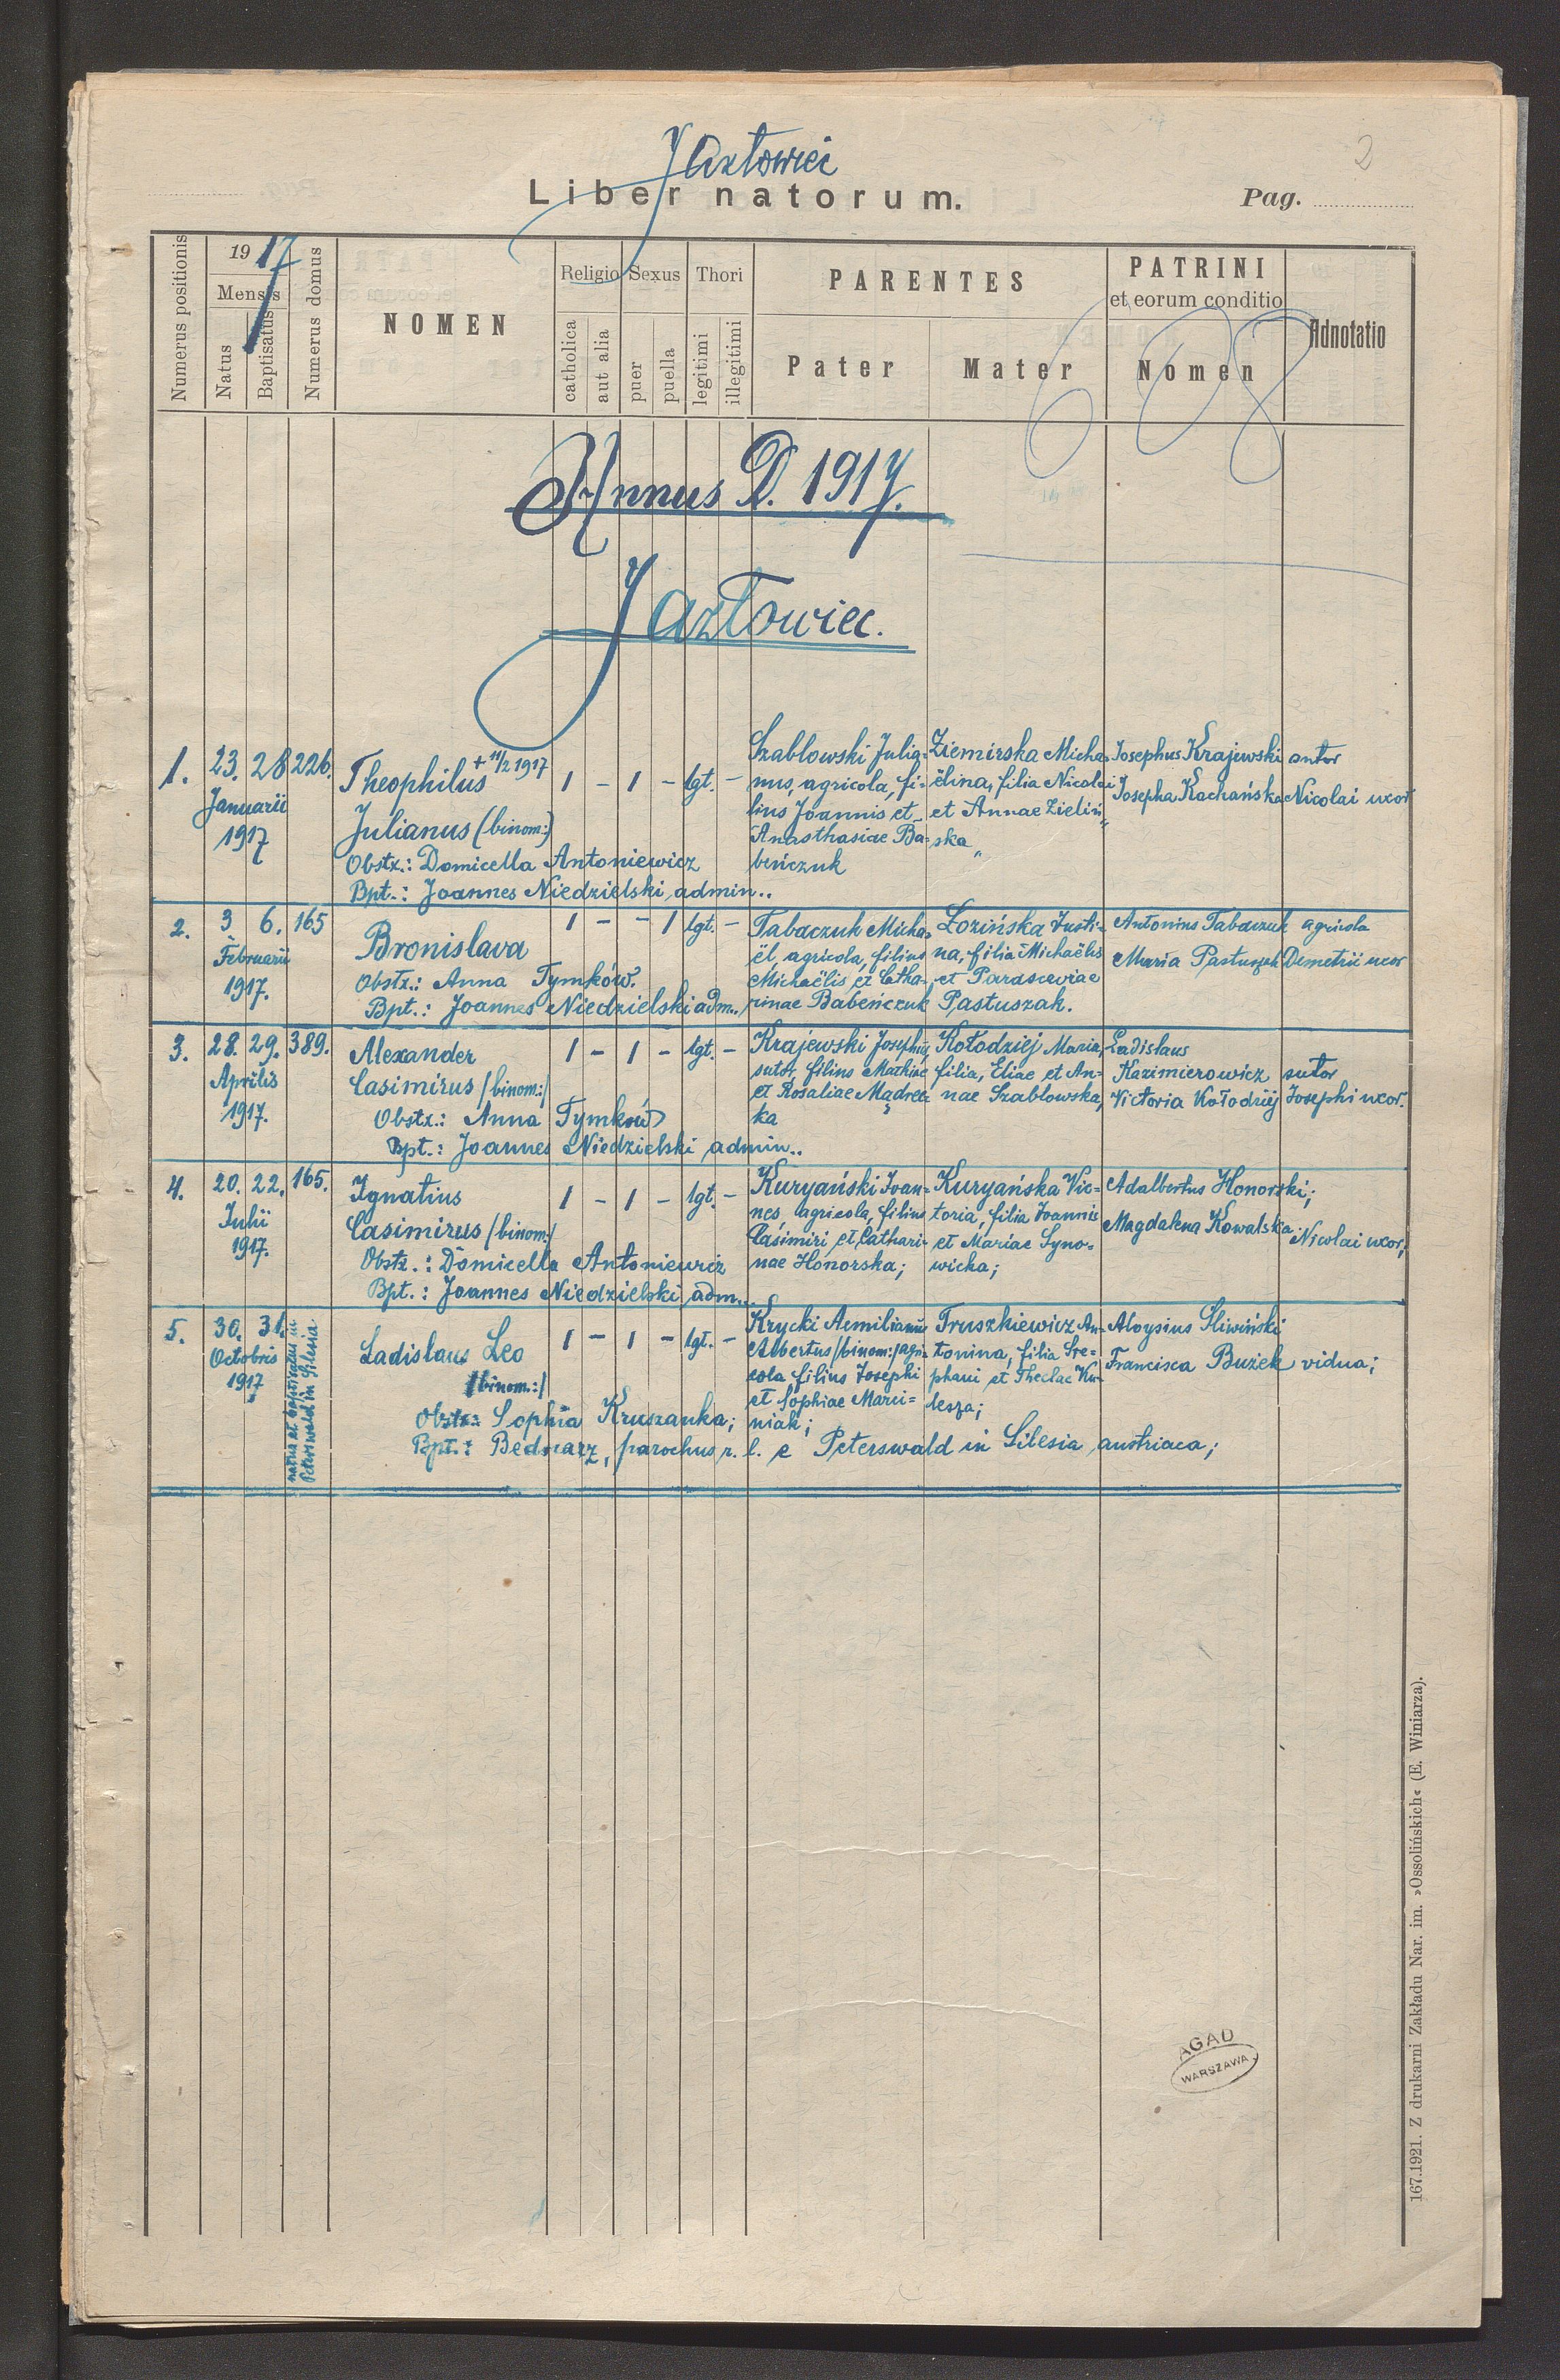 Jazłowiec
2
Liber natorum.
Pag.
Numerus positionis
1917
Mensis
Natus
Baptisatus
Numerus domus
NOMEN
Religio
catholica
aut alia
Sexus
puer
puella
Thori
legitimi
illegitimi
PARENTES
Pater
Mater
PATRINI
et eorum conditio
Nomen
Adnotatio
608
Annus D. 1917.
Jazłowiec.
1.
23. 28
Januarii
1917
226.
+ 11/2 1917
Theophilus
Julianus (binom:)
Obstx.: Domicella Antoniewicz
Bpt.: Joannes Niedzielski, admin..
1 - 1 - lgt. -
Szablowski Julia-
nus, agricola, fi-
lius Joannis et
Anasthasiae Ba-
beńczuk
Ziemirska Micha-
ëlina, filia Nicolai
et Annae Zieliń-
ska
Josephus Krajewski
Josepha Kachańska
Nicolai uxor
2.
3 6.
Februarii
1917.
165
Bronislava
Obstx.: Anna Tymków.
Bpt.: Joannes Niedzielski adm..
1 - - 1 lgt. -
Tabaczuk Micha-
ël, agricola, filius
Michaëlis et Catha-
rinae Babeńczuk
Lozińska Justi-
na, filia Michaëlis
et Parasceviae
Pastuszak.
Antonius Tabaczuk agricola
Maria Pastuszak Demetrii uxor
3.
28. 29.
Aprilis
1917.
389.
Alexander
Casimirus /binom:/
Obstx.: Anna Tymków
Bpt.: Joannes Niedzielski admin..
1 - 1 - lgt. -
Krajewski Josephus,
sutor, filius Mathiae
et Rosaliae Mądrec-
ka
Kołodziej Maria,
filia, Eliae et An-
nae Szablowska,
Ladislaus
Kazimierowicz sutor
Victoria Kołodziej Josephi uxor.
4.
20. 22.
Julii
1917.
165.
Ignatius
Casimirus /binom:/
Obstx.: Domicella Antoniewicz
Bpt.: Joannes Niedzielski, adm...
1 - 1 - lgt. -
Kuryański Joan-
nes, agricola, filius
Casimiri et Cathari-
nae Honorska;
Kuryańska Vic-
toria, filia Joannis
et Mariae Syno-
wicka;
Adalbertus Honorski;
Magdalena Kowalska Nicolai uxor;
5.
30. 31.
Octobris
1917
natus et baptisatus in
Peterswald in Silesia
Ladislaus Leo
/binom.:/
Obstx: Sophia Kruszanka;
Bpt.: Bednarz, parochus r. l. e Peterswald in Silesia austriaca;
1 - 1 - lgt. -
Krycki Aemilianus
Albertus /binom:/ agri-
cola filius Josephi
et Sophiae Marci-
niak;
Truszkiewicz An-
tonina, filia Ste-
phani et Theclae Ku-
lesza;
Aloysius Śliwiński
Francisca Buzek vidua;
AGAD
WARSZAWA
167.1921. Z drukarni Zakładu Nar. im. »Ossolińskich« (E. Winiarza).